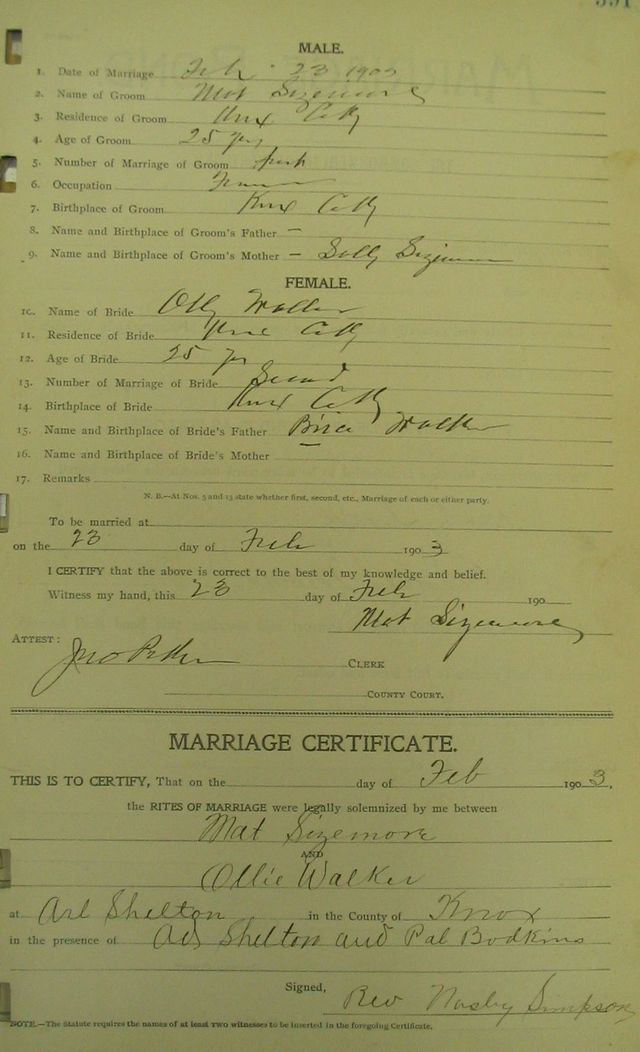 391
MALE.
1. Date of Marriage Feb 23 1903
2. Name of Groom Mat Sizemore
3. Residence of Groom Knox Co Ky
4. Age of Groom 25 yrs
5. Number of Marriage of Groom first
6. Occupation Farmer
7. Birthplace of Groom Knox Co Ky
8. Name and Birthplace of Groom's Father –
9. Name and Birthplace of Groom's Mother – Sally Sizemore
FEMALE.
10. Name of Bride Olly Walker
11. Residence of Bride Knox Co Ky
12. Age of Bride 25 yrs
13. Number of Marriage of Bride Second
14. Birthplace of Bride Knox Co Ky
15. Name and Birthplace of Bride's Father Brice Walker
16. Name and Birthplace of Bride's Mother —
17. Remarks
N. B.—At Nos. 5 and 13 state whether first, second, etc., Marriage of each or either party.
To be married at
on the 23 day of Feb 1903
I CERTIFY that the above is correct to the best of my knowledge and belief.
Witness my hand, this 23 day of Feb 190
Mat Sizemore
ATTEST:
Jno CLERK
COUNTY COURT.
MARRIAGE CERTIFICATE.
THIS IS TO CERTIFY, That on the day of Feb 1903,
the RITES OF MARRIAGE were legally solemnized by me between
Mat Sizemore
AND
Ollie Walker
at Arl Shelton in the County of Knox
in the presence of Shelton and Pal Bodkins
Signed, Rev Nasby Simpson
NOTE.—The Statute requires the names of at least TWO witnesses to be inserted in the foregoing Certificate.